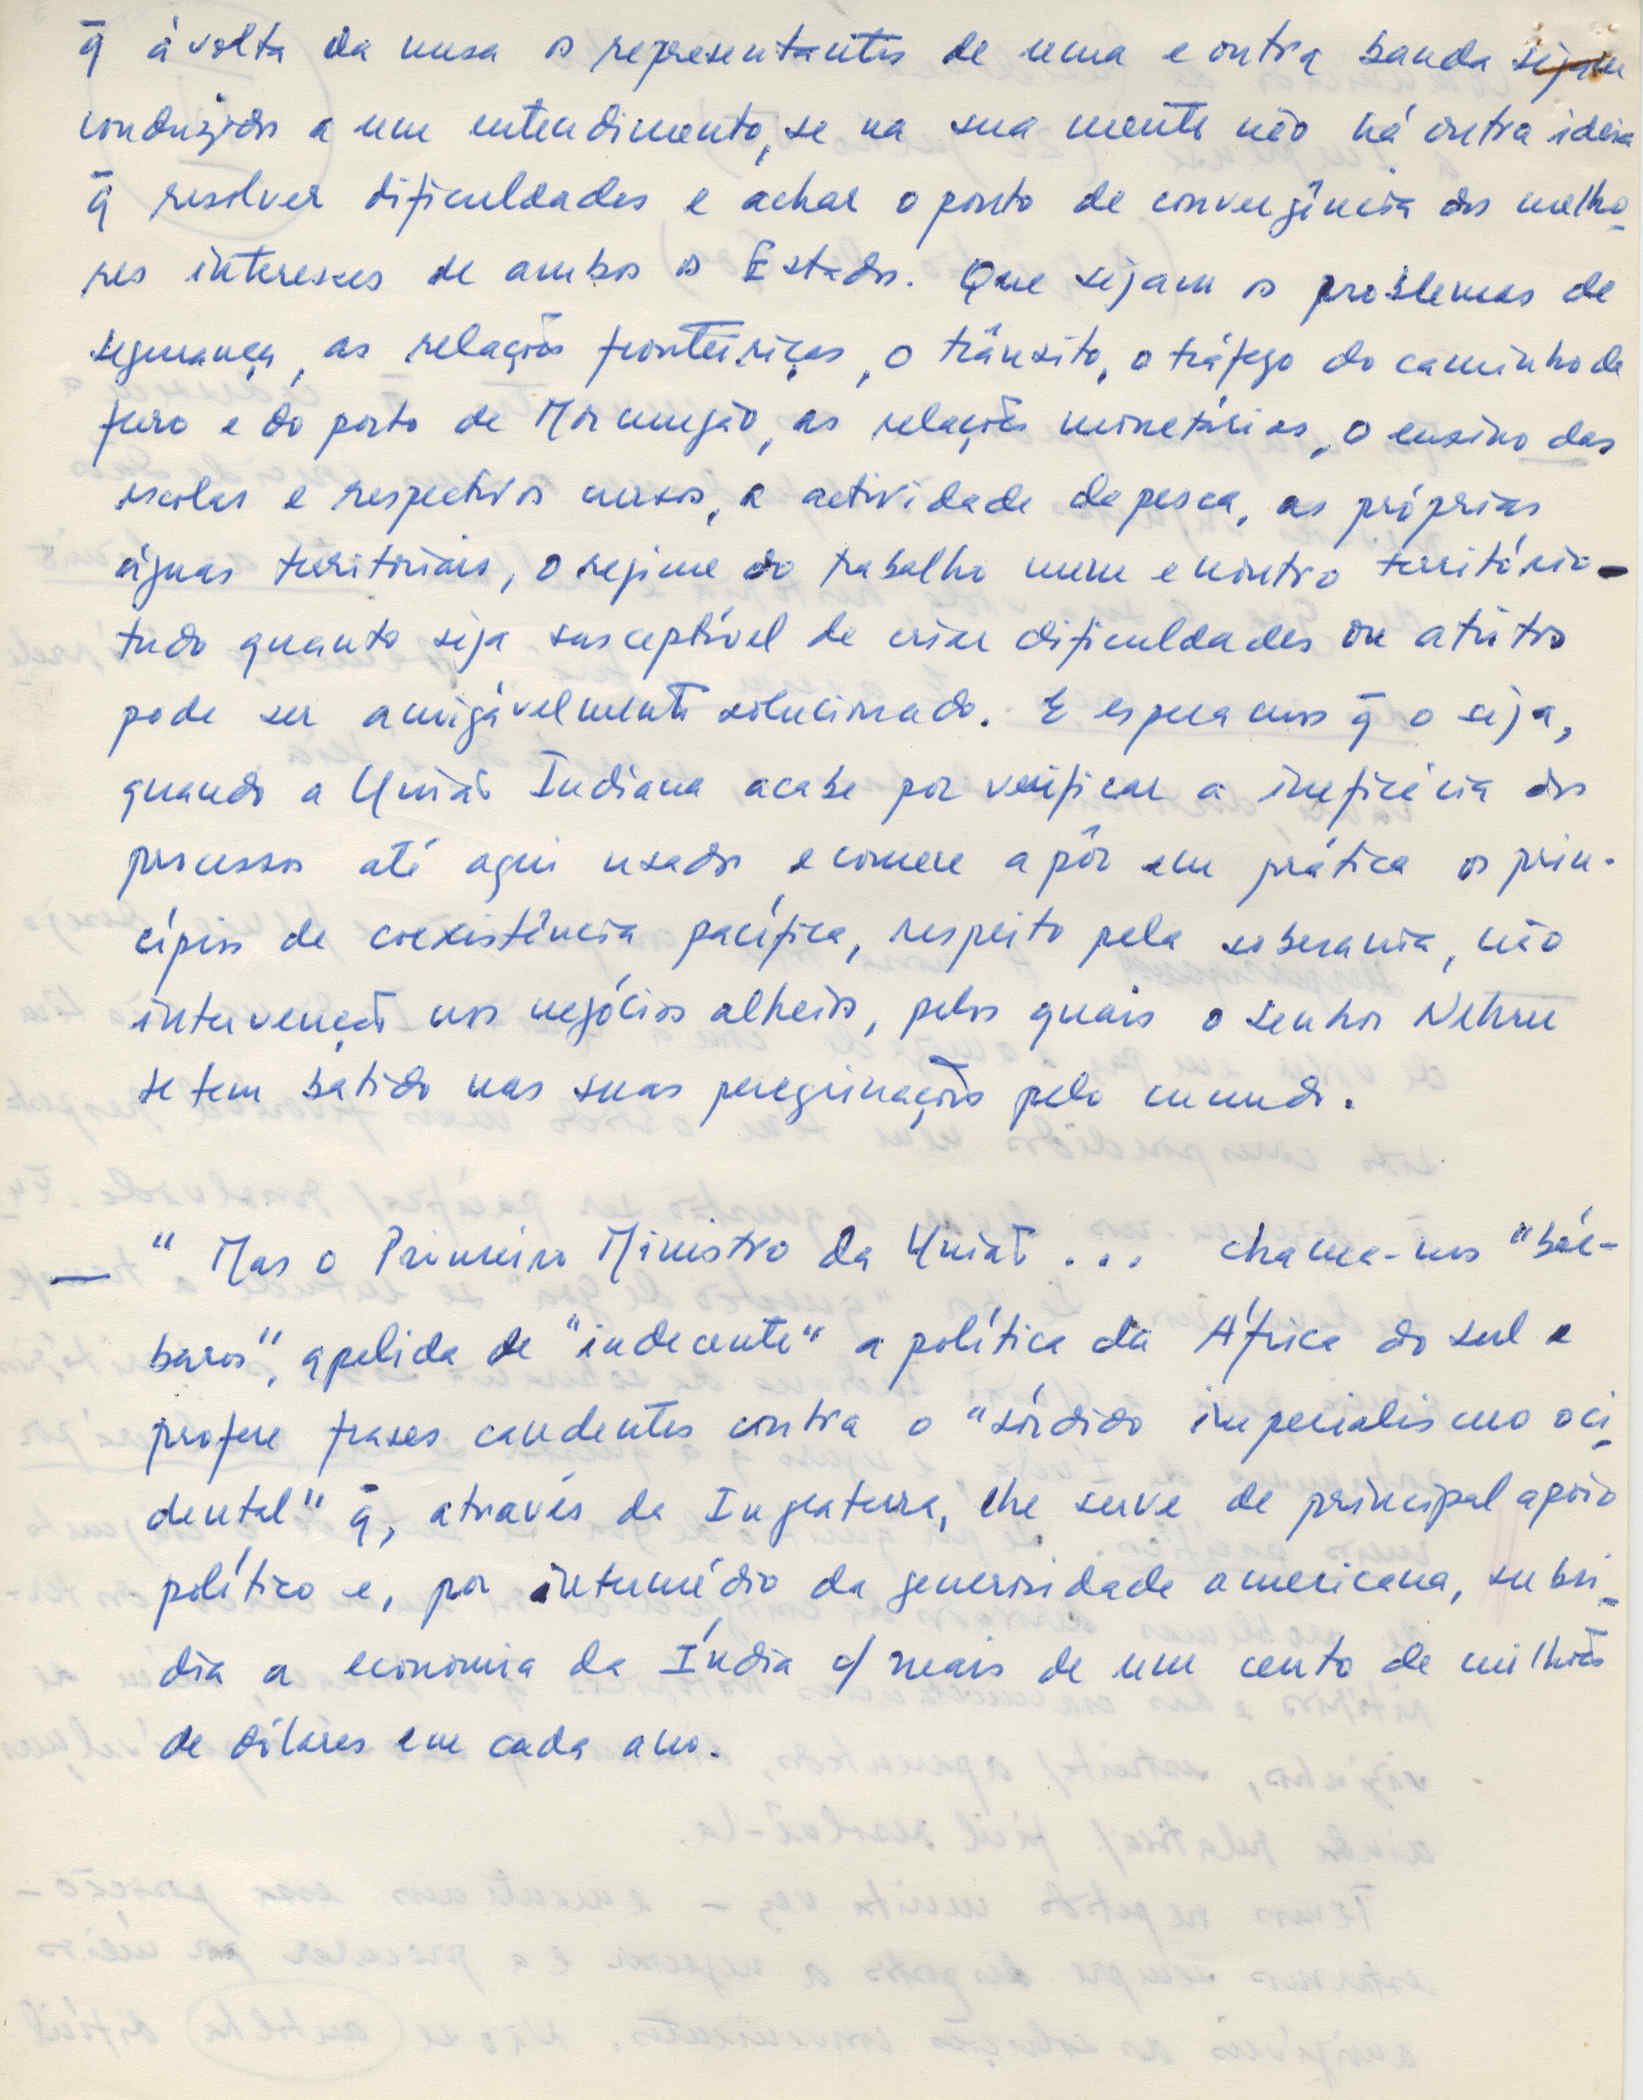 q̄ à volta da mesa os representantes de uma e outra banda sejam
conduzidos a um entendimento, se na sua mente não há outra ideia
q̄ resolver dificuldades e achar o ponto de convergência dos melho-
res interesses de ambos os Estados. Que sejam os problemas de
segurança, as relações fronteiriças, o trânsito, o tráfego do caminho de
ferro e do porto de Mormugão, as relações monetárias, o ensino das
escolas e respectivos cursos, a actividade da pesca, as próprias
águas territoriais, o regime do trabalho num e noutro território —
tudo quanto seja susceptível de criar dificuldades ou atrito
pode ser amigàvelmente solucionado. E esperamos q̄ o seja,
quando a União Indiana acabe por verificar a ineficácia dos
processos até aqui usados e comece a pôr em prática os prin-
cípios de coexistência pacífica, respeito pela soberania, não
intervenção nos negócios alheios, pelos quais o senhor Nehru
se tem batido nas suas peregrinações pelo mundo.
— " Mas o Primeiro Ministro da União ... chama-nos "bár-
baros", apelida de "indecente" a política da África do sul e
profere frases candentes contra o "sórdido imperialismo oci-
dental" q̄, através da Inglaterra, lhe serve de principal apoio
político e, por intermédio da generosidade americana, subsi-
dia a economia da Índia c/ mais de um cento de milhões
de dólares em cada ano.